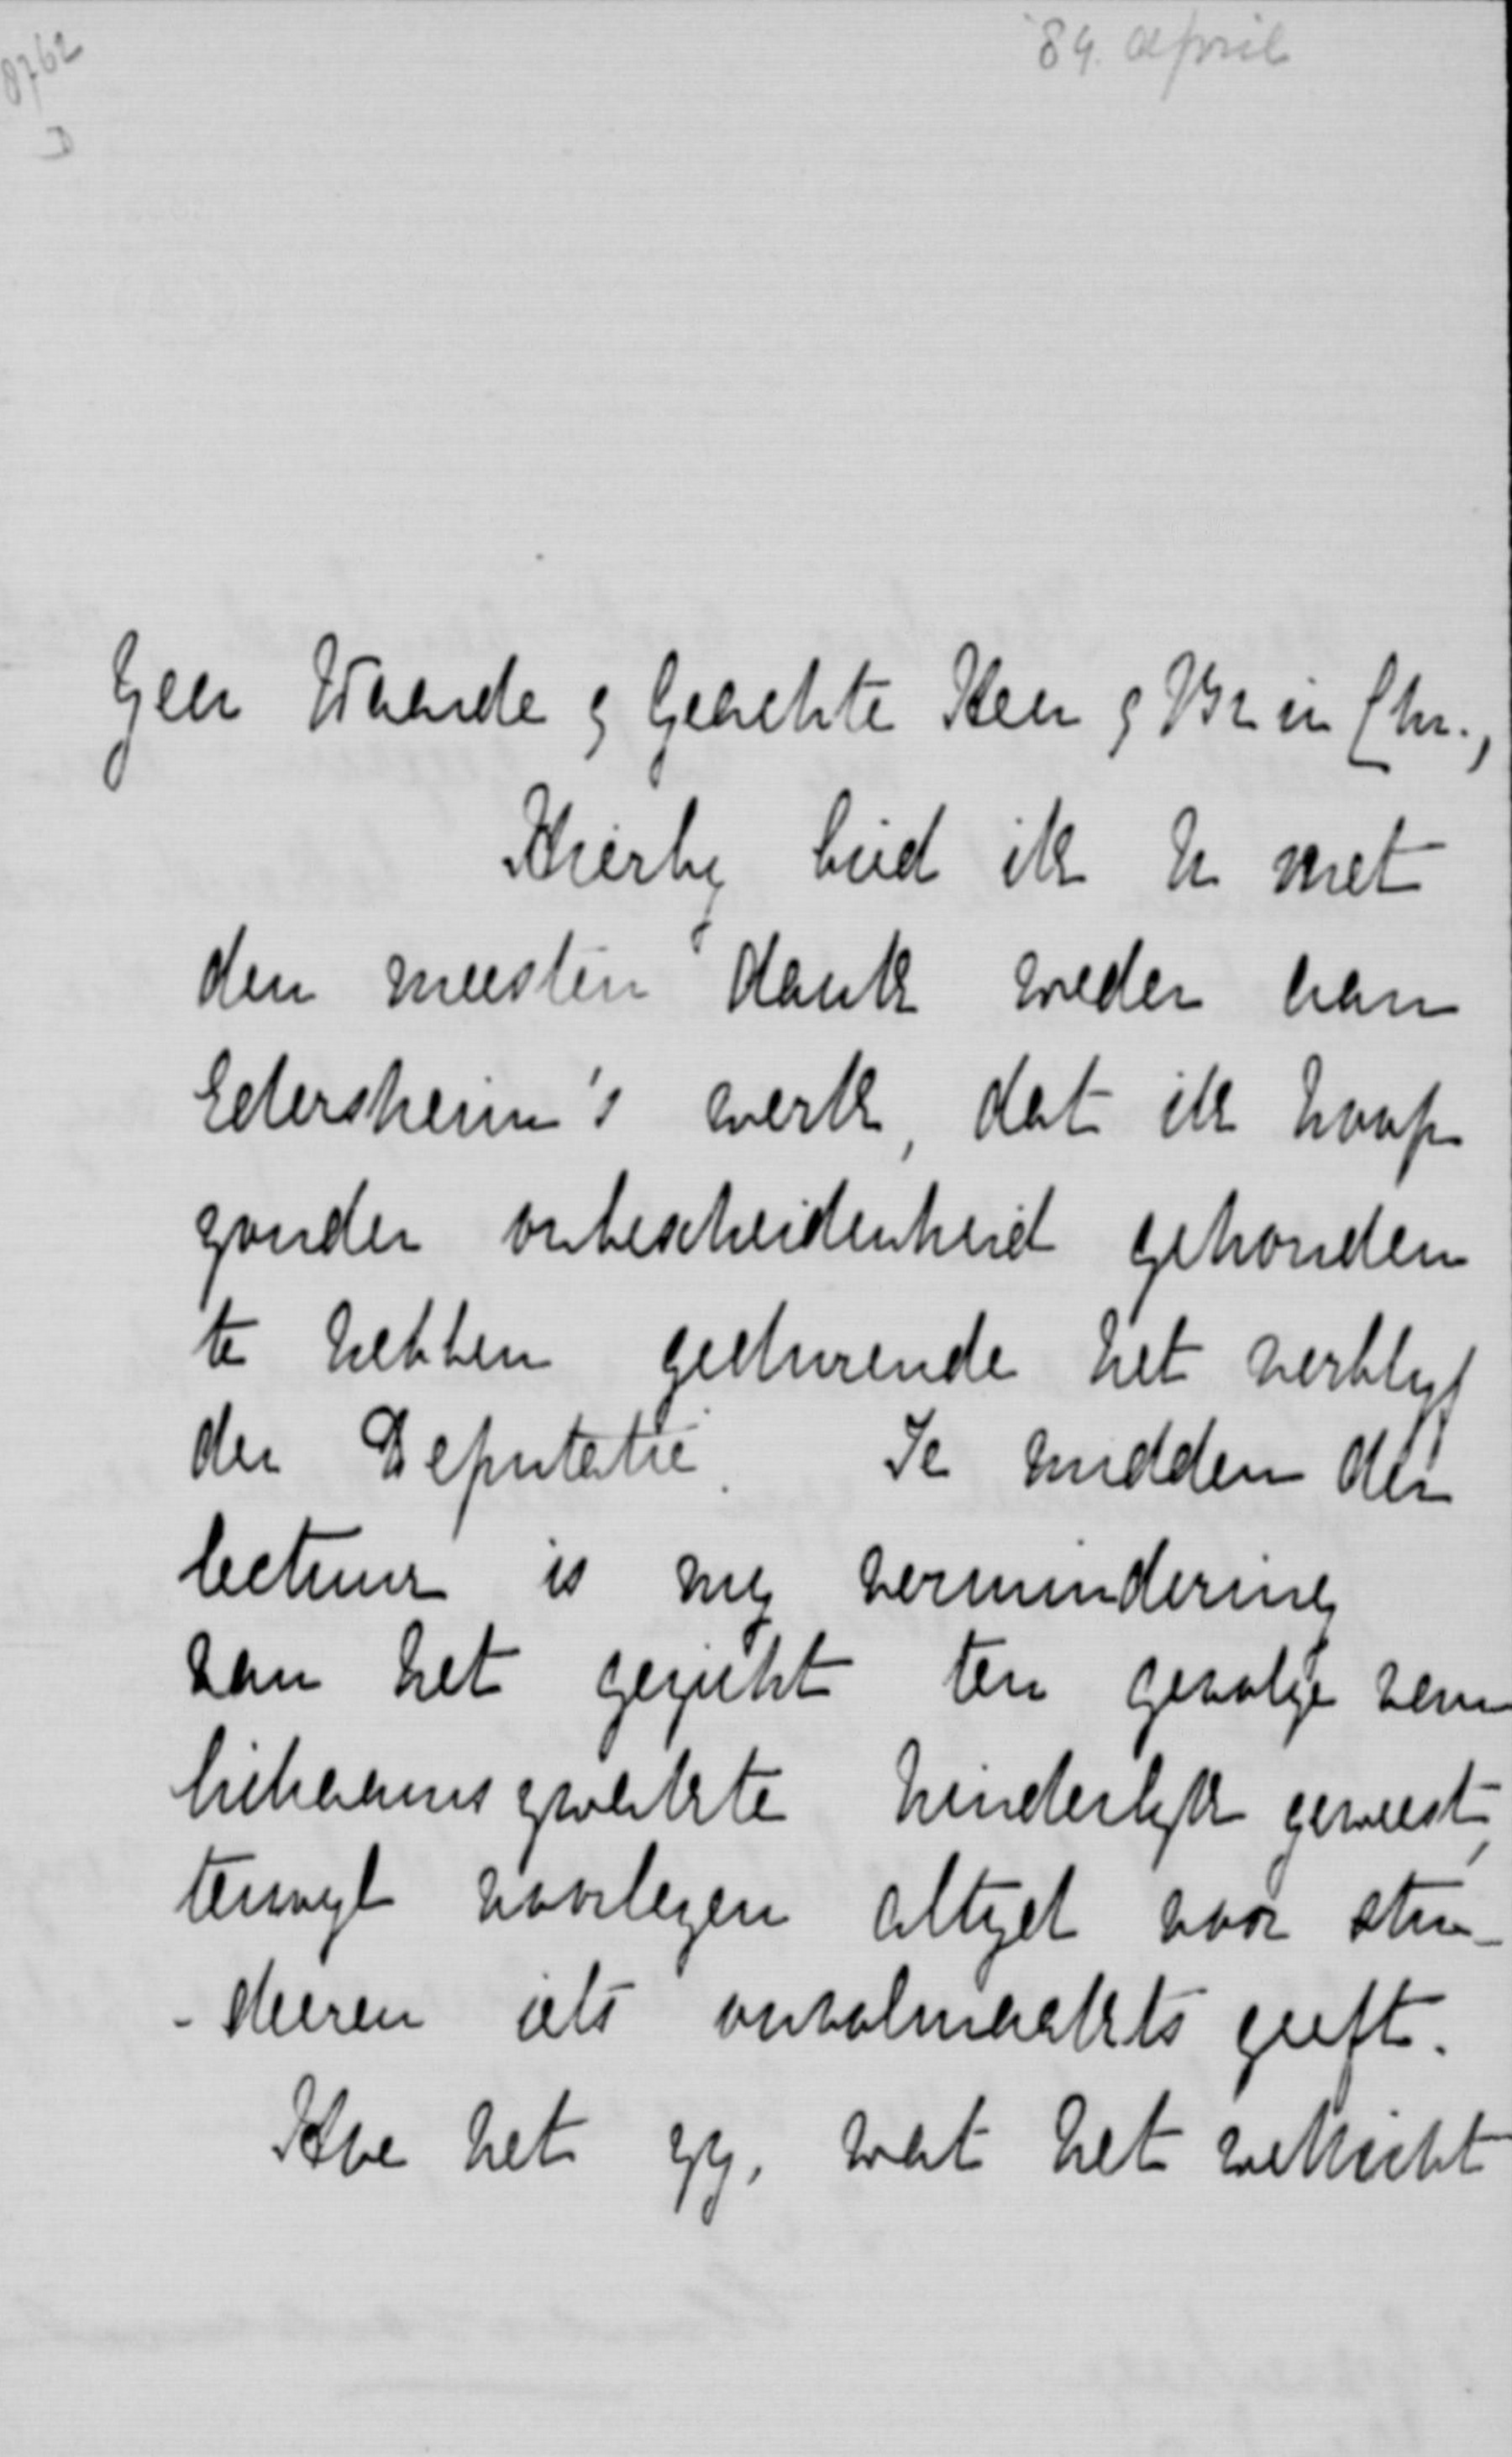 8762
D
'84. april
Zeer Waarde & Geachte Heer & Br in Chr.,
Hierby bied ik U met
den meesten dank weder aan
Edersheim's werk, dat ik hoop
zonder onbescheidenheid gehouden
te hebben gedurende het verblyf
der Deputatie. Te midden der
lectuur is my vermindering
van het gezicht ten gevolge van
lichaamszwakte hinderlyk geweest,
terwyl voorlezen altyd voor stu-
-deeren iets onvolmaakts geeft.
Hoe het zy, wat het wellicht